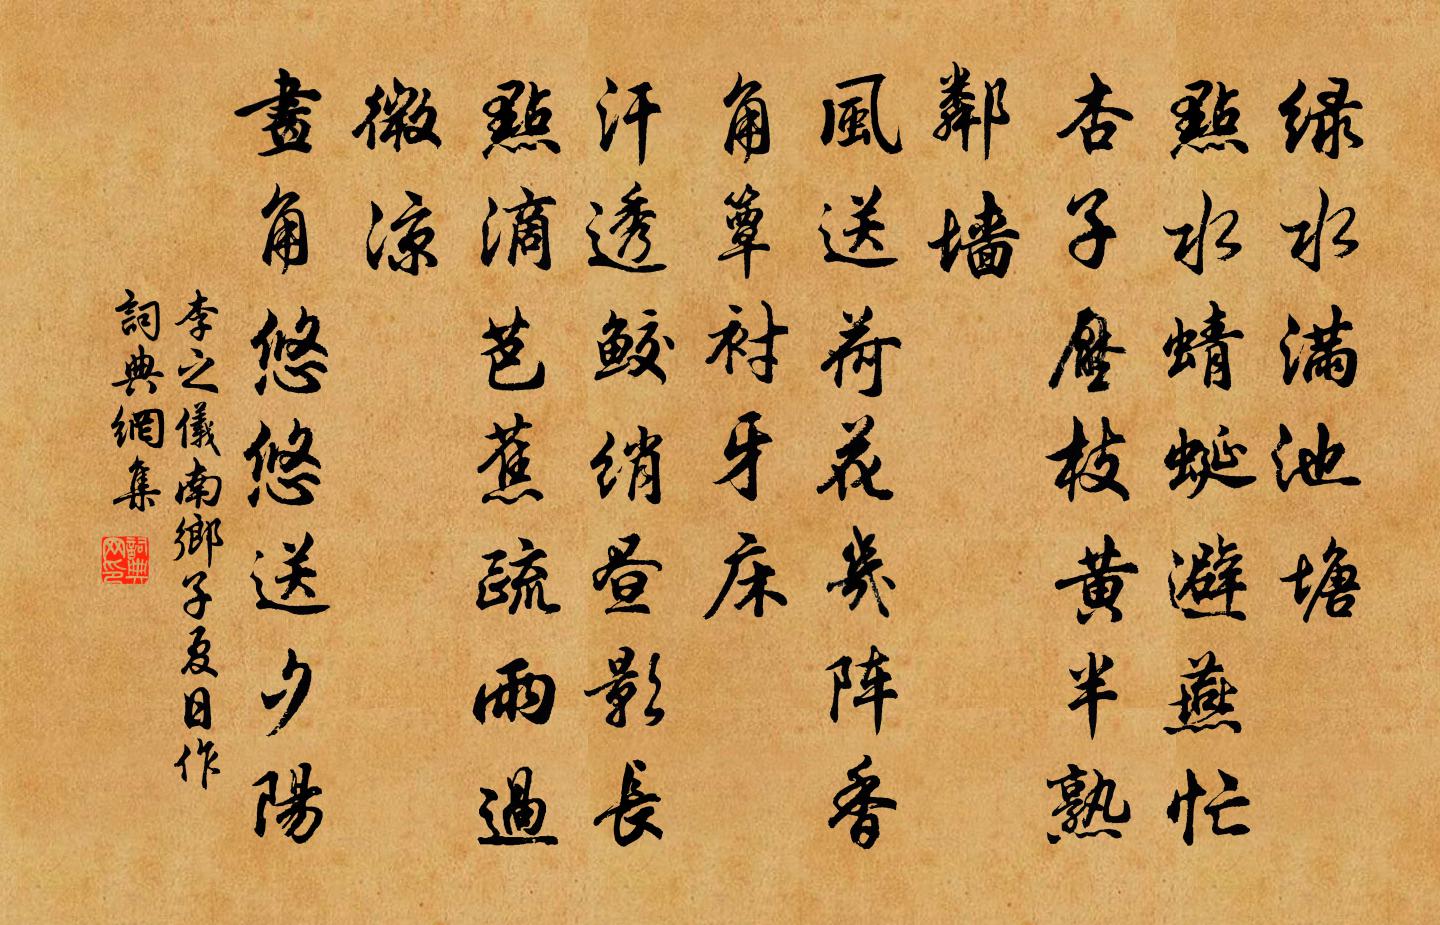 緑水滿池塘
點水蜻蜓避燕忙
杏子壓枝黄半熟
鄰墻
風送荷花幾阵香
角簟衬牙床
汗透鲛綃昼影長
點滴芭蕉疏雨過
微涼
畫角悠悠送夕陽
李之儀南鄉子夏日作
詞典網集
詞典
网印